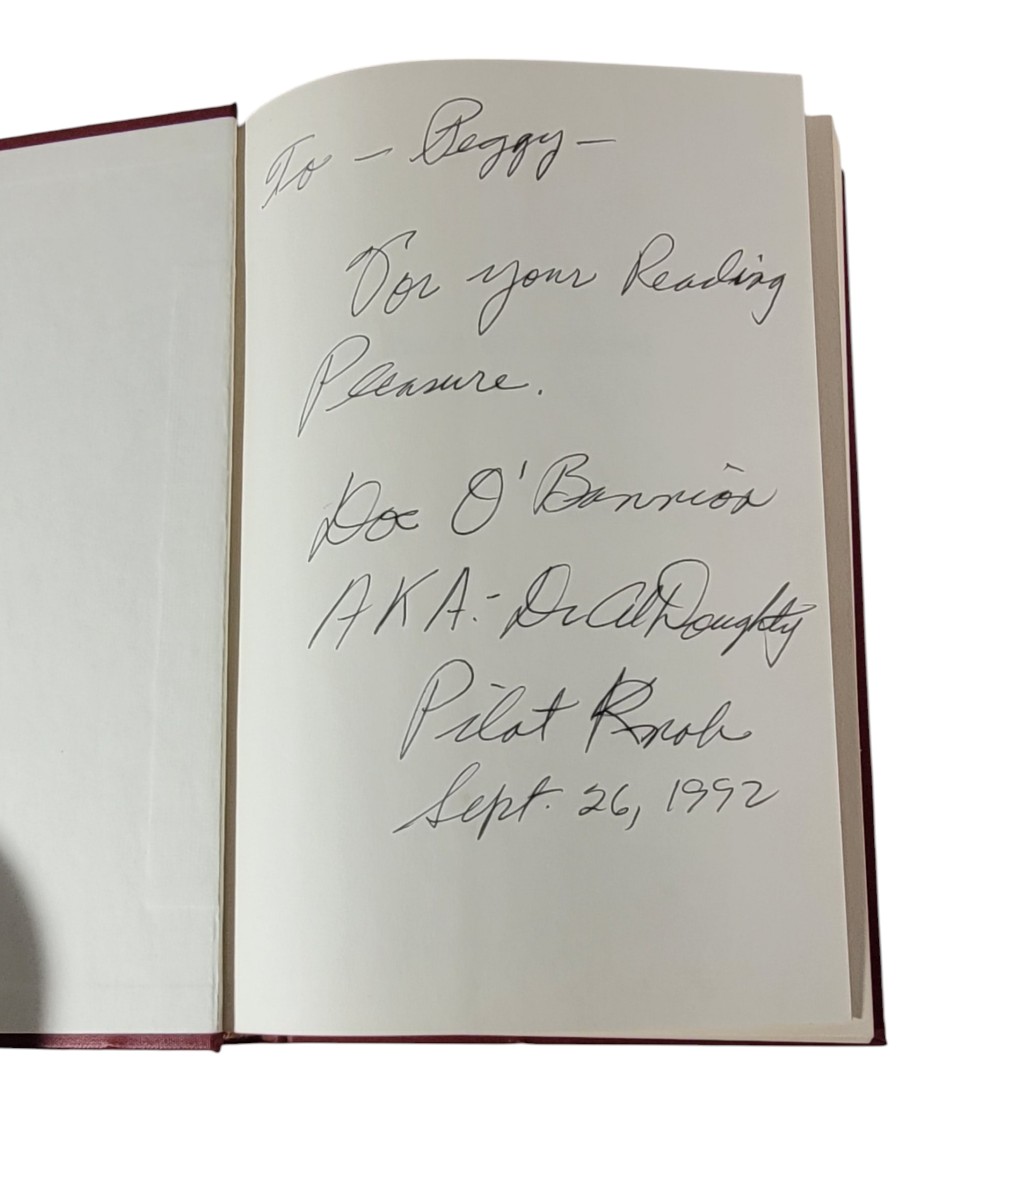 To - Peggy -
For your Reading
Pleasure.
Doc O'Bannion
AKA:- Dr Al Doughty
Pilot Knob
Sept. 26, 1992